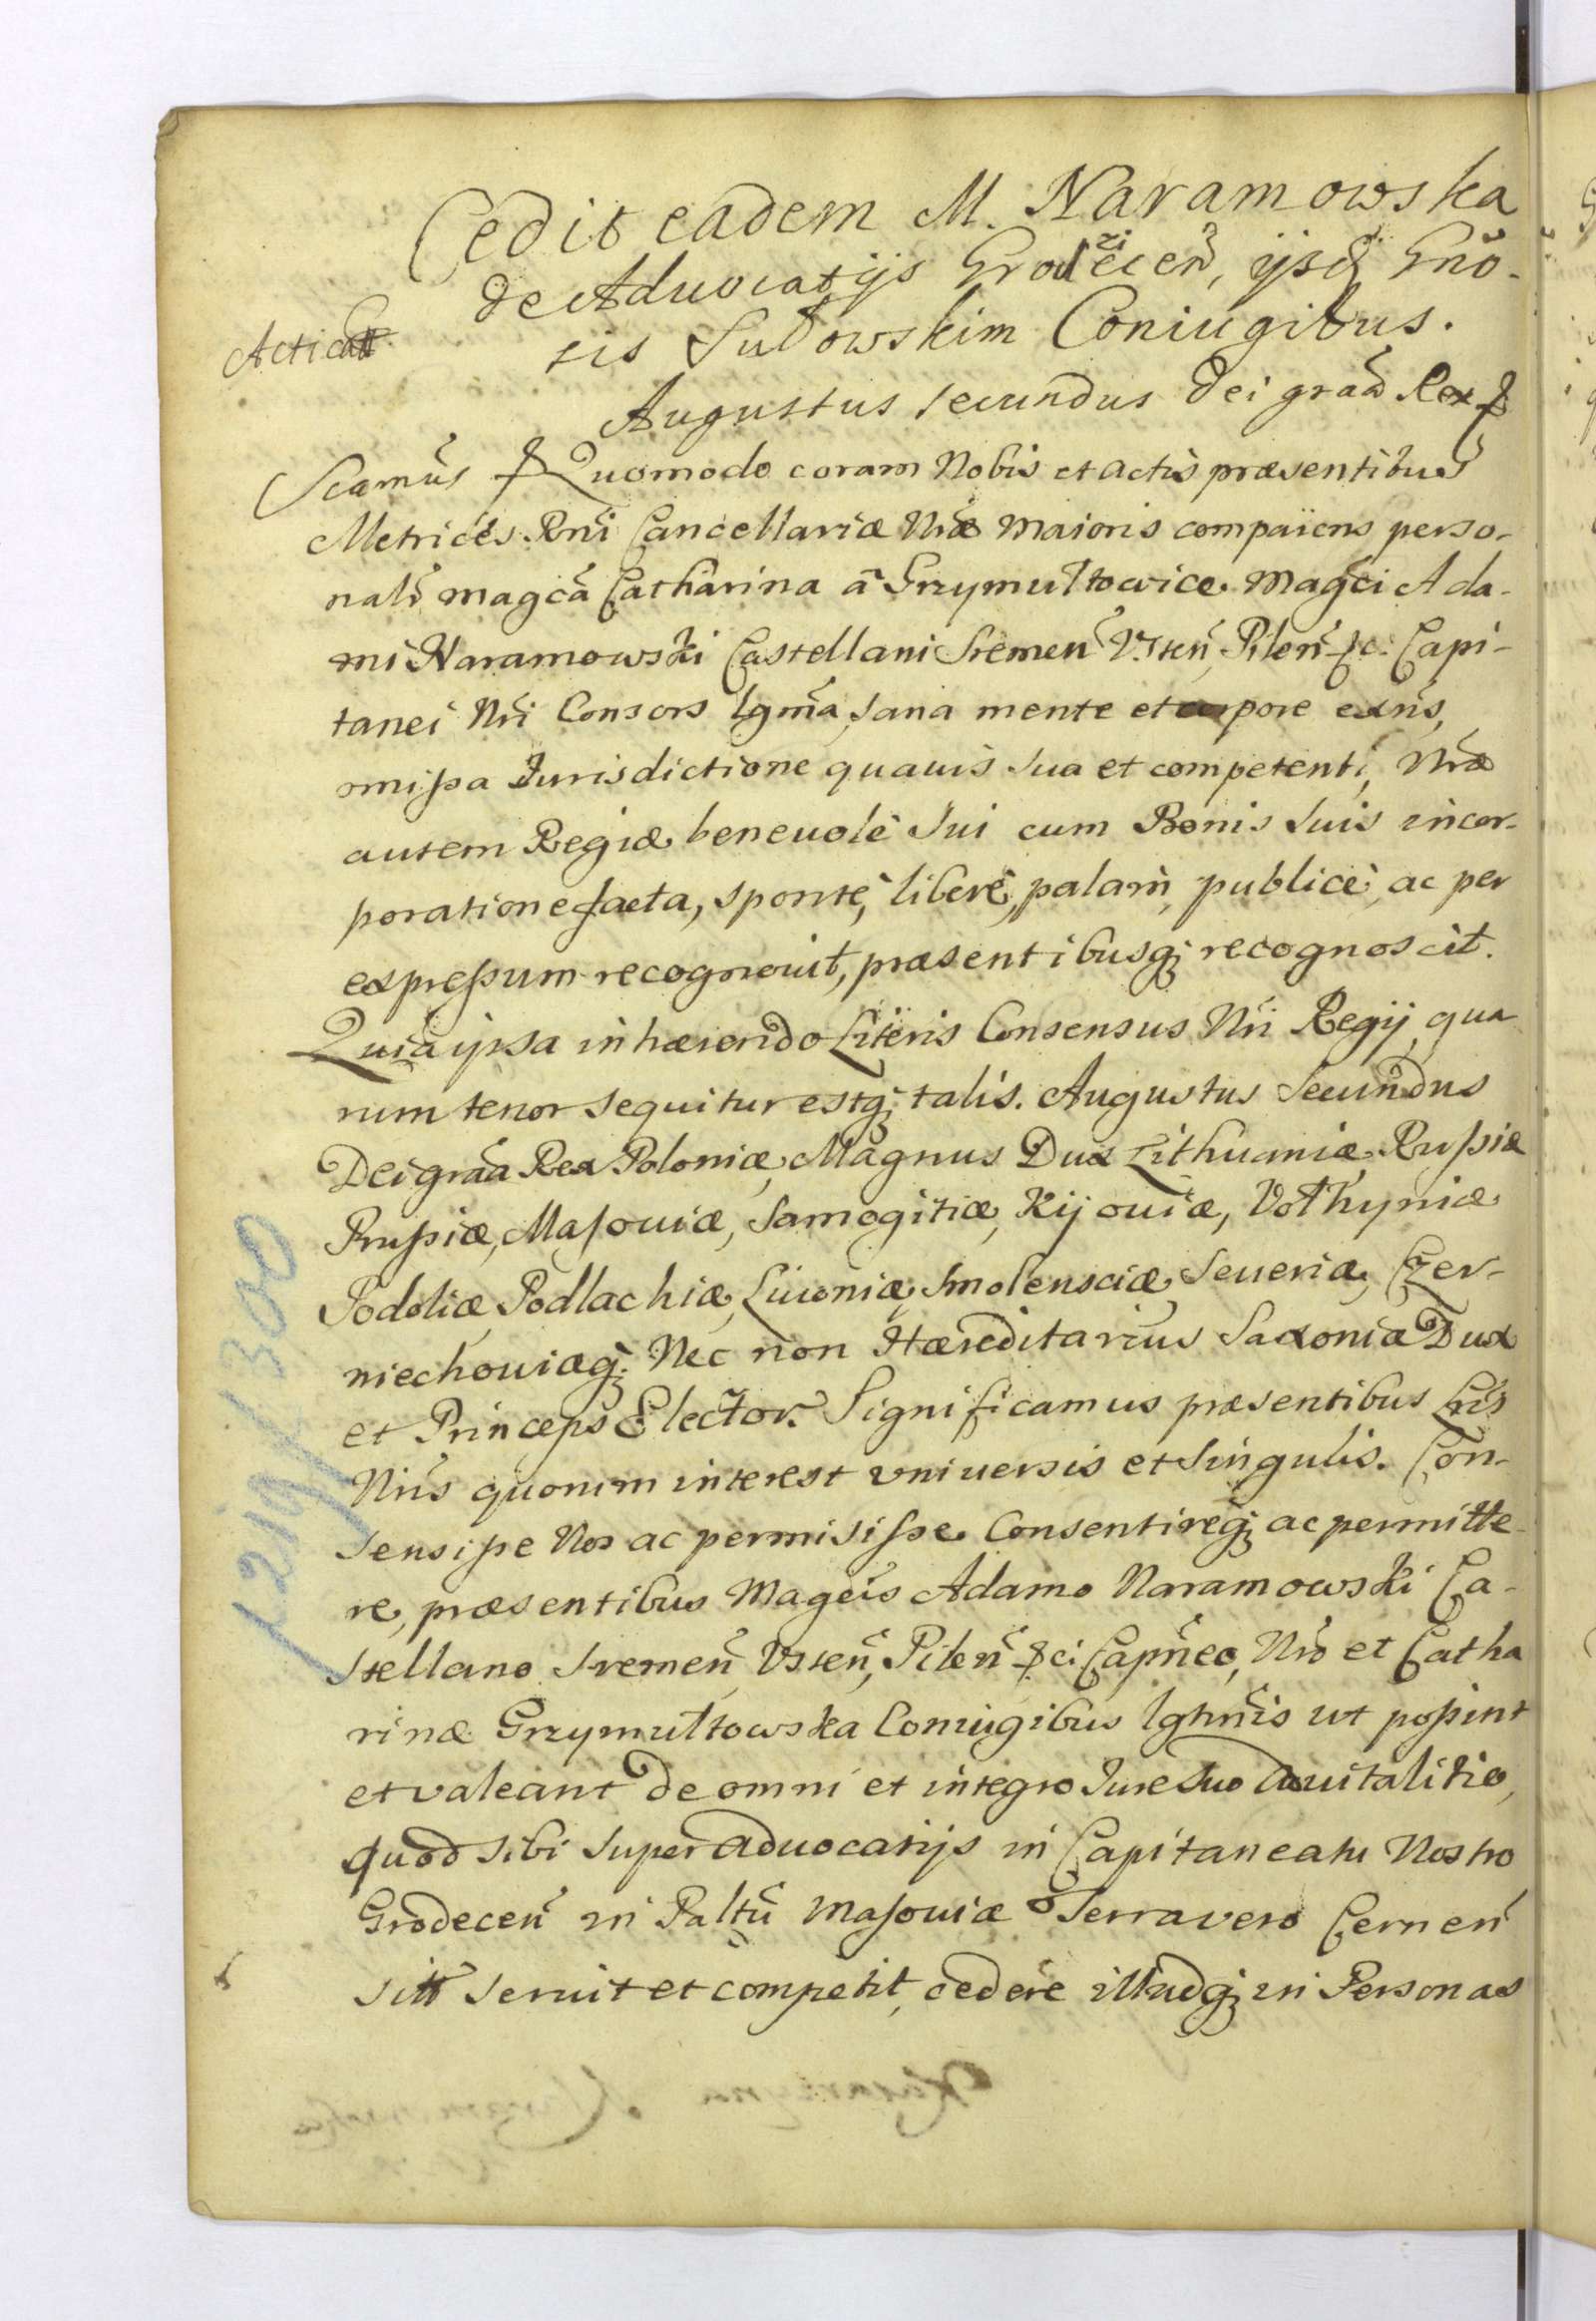 Cedit eadem M. Naramowska
de Aduocatijs Grodziecen̄, ijsd̄ Gn̄o-
sis Sułowskim Coniugibus.
Acticatt
Augustus secundus Dei grãa Rex &
Scamūs & Quomodo coram Nobis et actis præsentibus
Metrices Rn̄i Cancellariæ Nr̄æ Maioris compaiens perso-
nalr̄ magcã Catharina ā Grzymułtowice Magci Ada-
mi Naramowski Castellani Sremen̄ Vsten̄, Pilen̄ &c. Capi-
tanei Nr̄i Consors lgm̄a, sana mente et corpore exn̄s,
omißa Jurisdictione quauis sua et competenti, Nr̄æ
autem Regiæ beneuolè sui cum Bonis suis incor-
poratione facta, spontè, liberè, palàm, publicè, ac per
expreßum recognouit, præsentibusq; recognoscit.
Quia ipsa inhærendo Literis Consensus Nr̄i Regij, qua
rum tenor sequitur estq; talis. Augustus Secundus
Dei grãa Rex Poloniæ, Magnus Dux Lithuaniæ, Rußiæ
Prußiæ, Masouiæ, Samogitiæ, Kijouiæ, Vołhyniæ
Podoliæ Podlachiæ, Liuoniæ, Smolensciæ, Seueriæ, Czer-
niechouiæq; Nec non Hæreditarius Saxoniæ Dux
et Princeps Elector. Significamus præsentibus Lr̄is
Nr̄is quorum interest vniuersis et singulis. Con-
sensiße Nos ac permisiße Consentireq; ac permitte-
re, præsentibus Magcis Adamo Naramowski Ca-
stellano Sremen̄, Vsten̄, Pilen̄ &ci Capn̄eo, Nr̄o et Catha
rinæ Grzymułtowska Coniugibus lghm̄is ut poßint
et valeant de omni et integro Jure suo aduitalitio,
quod sibi super Aduocatijs in Capitaneatu Nostro
Grodecen̄ in Paltū Masouiæ Terra vero Cernen̄
sitt seruit et competit, cedere illudq; in Personas
1219/300